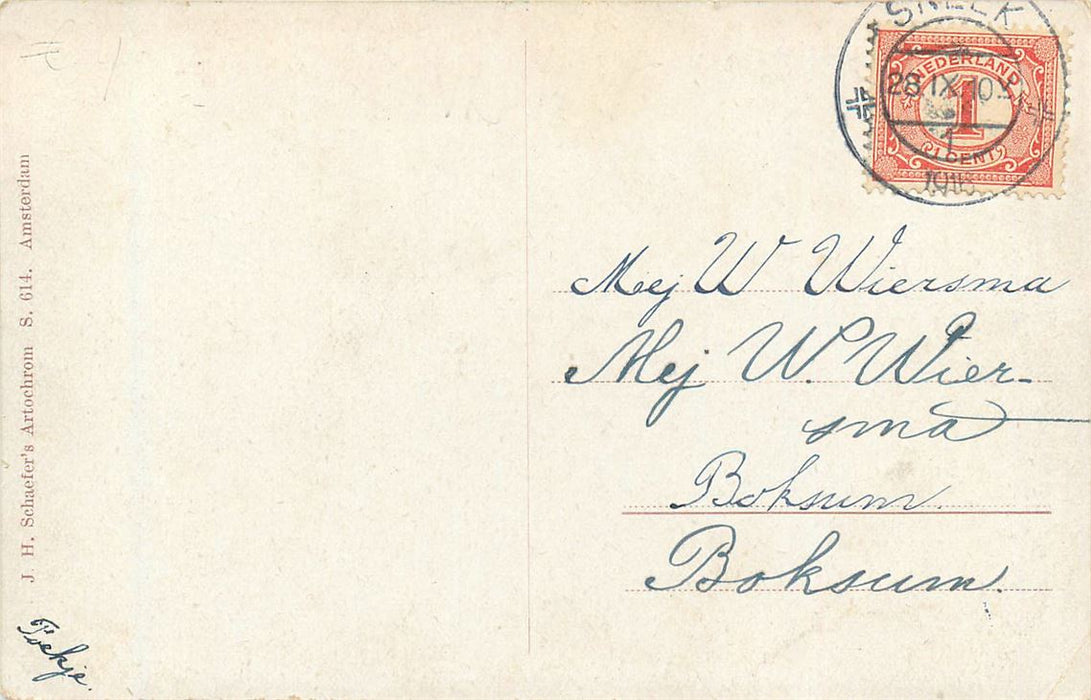 SNEEK
NEDERLAND
28 IX 10
1
1
CENT
1910
Mej W Wiersma
Mej W. Wier-
sma
Boksum
Boksum.
J. H. Schaefer's Artochrom S. 614. Amsterdam
Foekje.